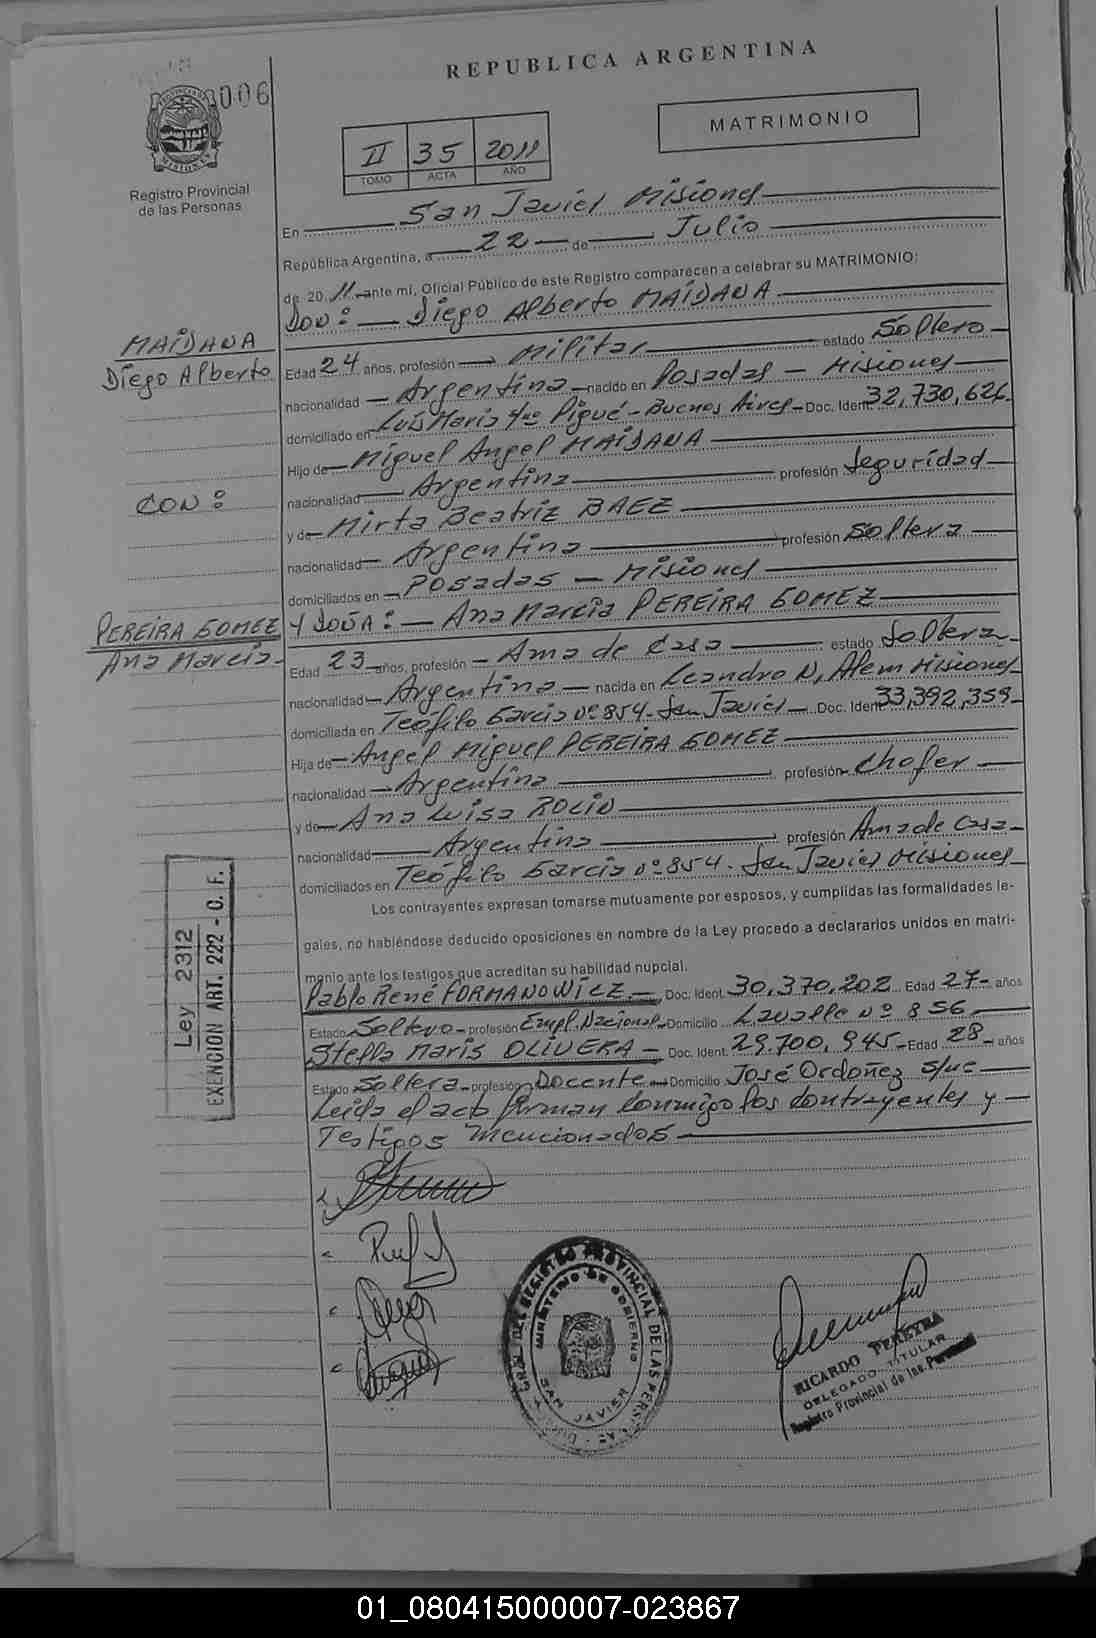 REPUBLICA ARGENTINA
006
MATRIMONIO
II 35 2011
TOMO ACTA AÑO
Registro Provincial
de las Personas
En San Javier Misiones
República Argentina, a 22 de Julio
de 20 11 ante mí, Oficial Público de este Registro comparecen a celebrar su MATRIMONIO:
DON: Diego Alberto MAIDANA
MAIDANA
Diego Alberto
Edad 24 años, profesión Militar estado Soltero
nacionalidad Argentina nacido en Posadas - Misiones
domiciliado en Luis Maria Pigué - Buenos Aires - Doc. Ident. 32,730,626
Hijo de Miguel Angel MAIDANA
nacionalidad Argentina profesión Seguridad
CON:
y de Mirta Beatriz BAEZ
nacionalidad Argentina profesión Soltera
domiciliados en POSADAS - Misiones
Y DOÑA: Ana Marcia PEREIRA GOMEZ
PEREIRA GOMEZ
Ana Marcia
Edad 23 años, profesión Ama de Casa estado Soltera
nacionalidad Argentina nacida en Leandro N, Alem Misiones
domiciliada en Teófilo Garcia nº 854 - San Javier Doc. Ident. 33,392,359
Hija de Angel Miguel PEREIRA GOMEZ
nacionalidad Argentina profesión Chofer
y de Ana Luisa ROLIN
nacionalidad Argentina profesión Ama de Casa
domiciliados en Teófilo Garcia nº 854 - San Javier Misiones
Los contrayentes expresan tomarse mutuamente por esposos, y cumplidas las formalidades le-
gales, no habiéndose deducido oposiciones en nombre de la Ley procedo a declararlos unidos en matri-
monio ante los testigos que acreditan su habilidad nupcial.
Pablo René FORMANOWICZ Doc. Ident. 30,370,202 Edad 27 años
Estado Soltero profesión Empl. Nacional Domicilio Lavalle nº 856
Stella Maris OLIVERA Doc. Ident. 29.700,945 Edad 28 años
Estado Soltera profesión Docente Domicilio José Ordoñez s/nº
Leida el acta firman conmigo los contrayentes y
Testigos mencionados
Ley 2312
EXENCION ART. 222 - O. F.
REGISTRO PROVINCIAL DE LAS PERSONAS
MINISTERIO DE GOBIERNO
SAN JAVIER
RICARDO PEREYRA
DELEGADO TITULAR
Registro Provincial de las Personas
01_080415000007-023867